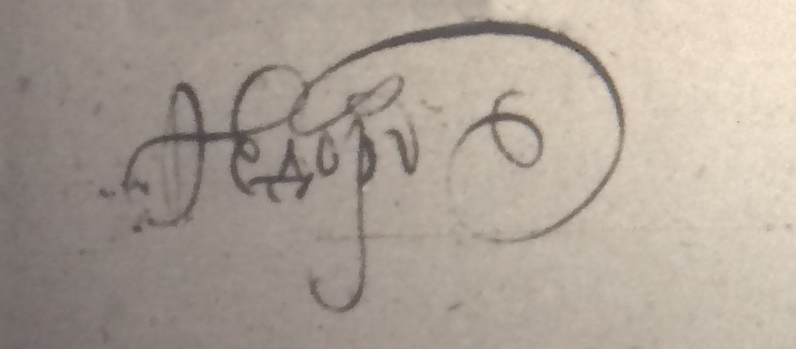 Ѳедоръ